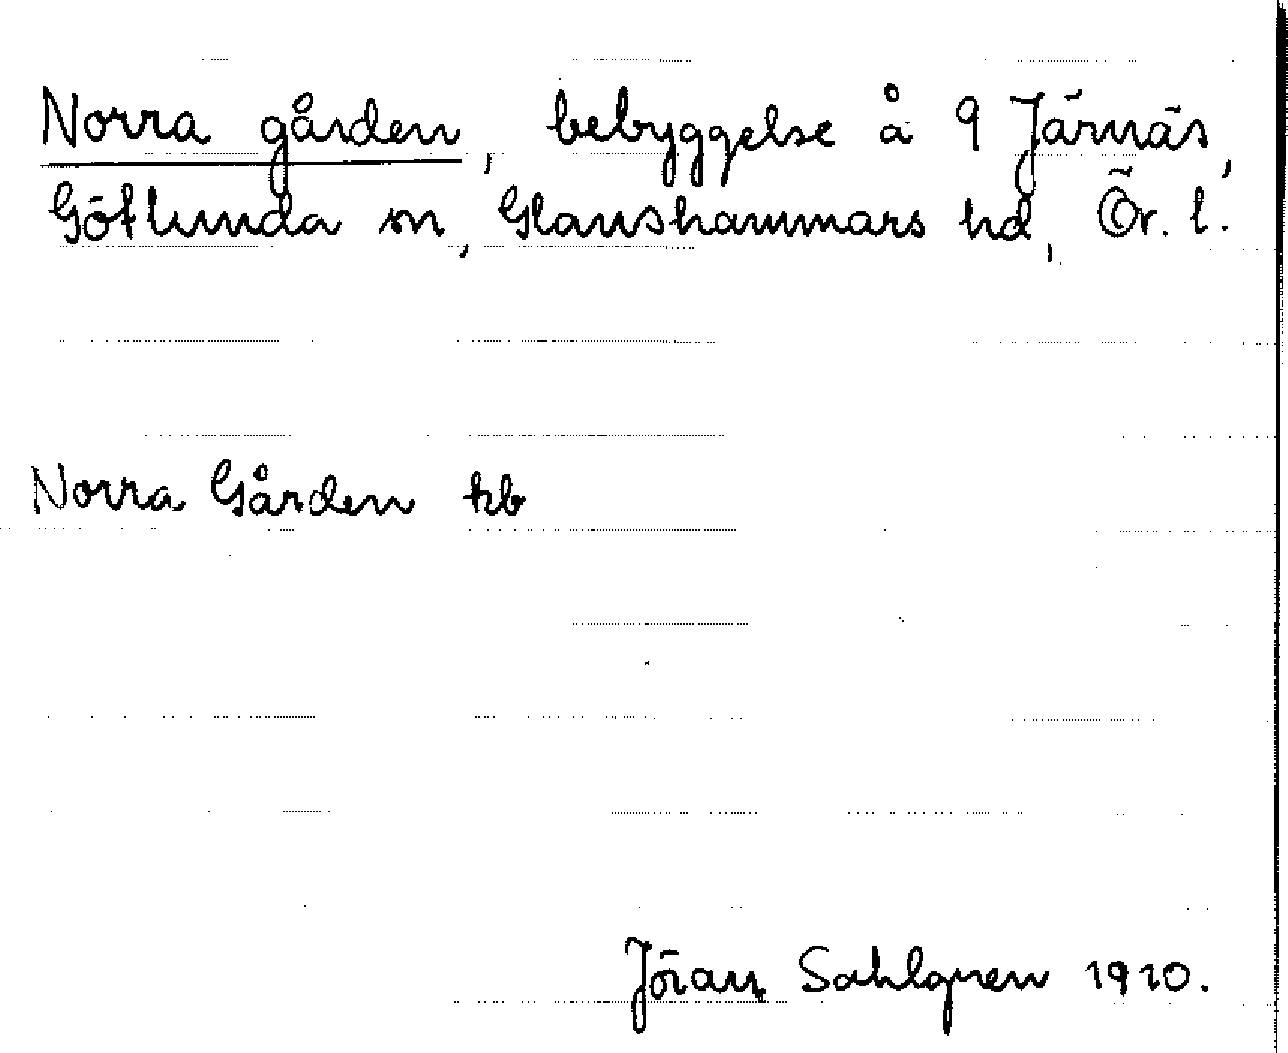 Norra gården, bebyggelse å 9 Järnäs,
Götlunda sn, Glanshammars hd, Ör. l.
Norra Gården kb
Jöran Sahlgren 1910.